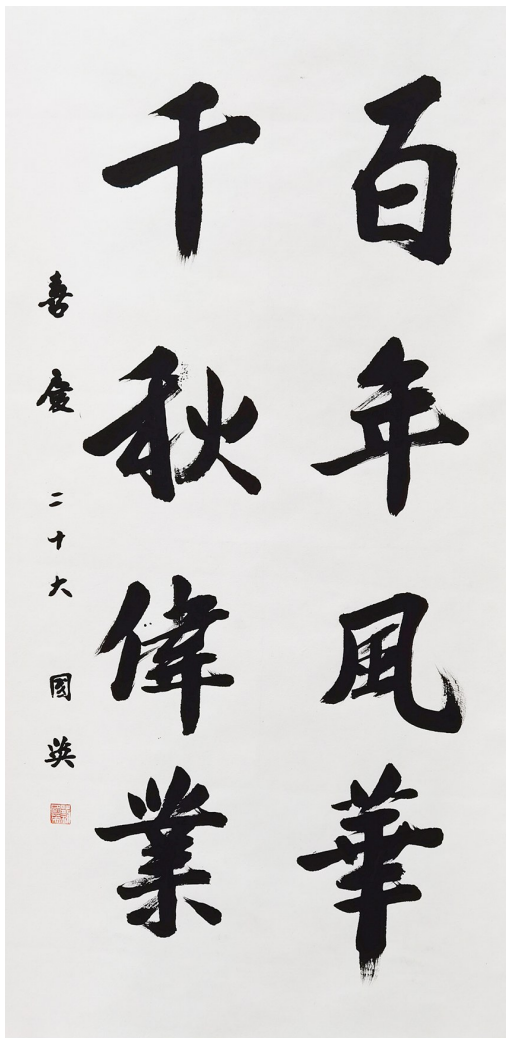 百年風華
千秋偉業
喜慶二十大 國英